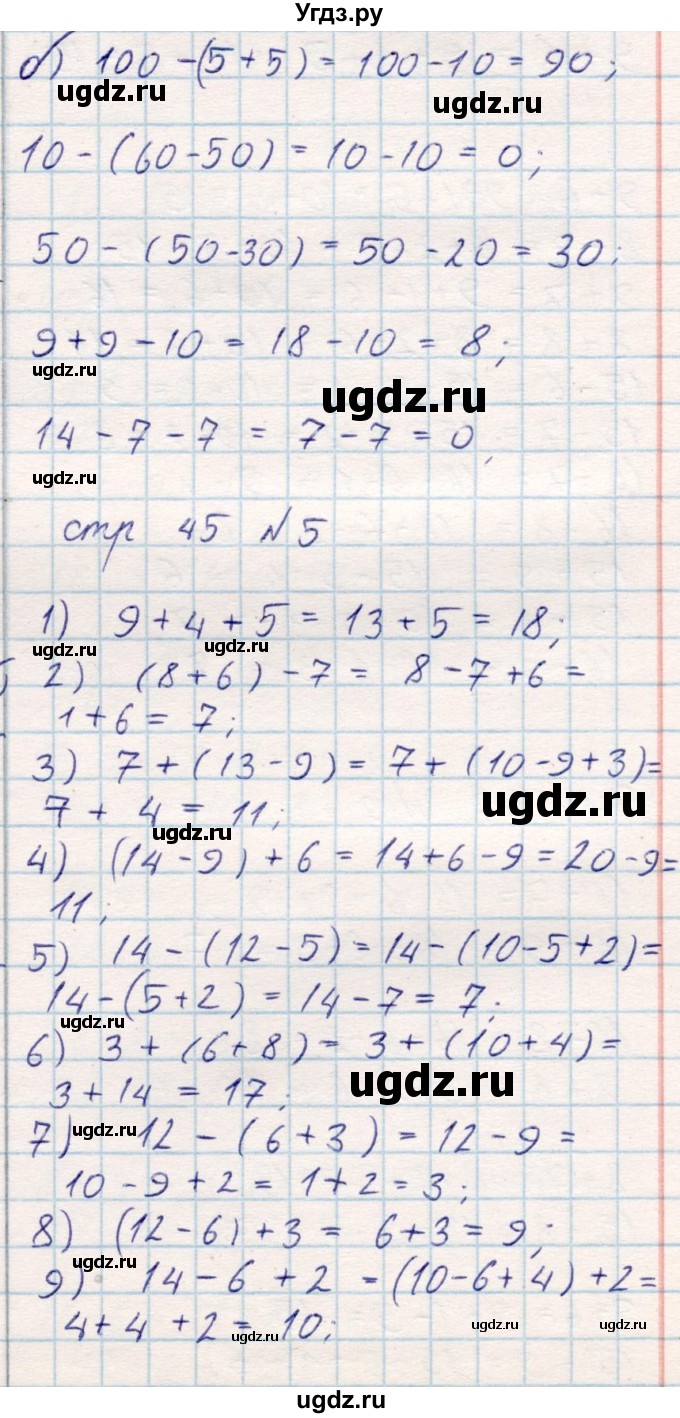 Угдз.ру
б) 100 - (5 + 5) = 100 - 10 = 90;
ugdz.ru ugdz.ru
10 - (60 - 50) = 10 - 10 = 0;
50 - (50 - 30) = 50 - 20 = 30;
9 + 9 - 10 = 18 - 10 = 8;
ugdz.ru ugdz.ru
14 - 7 - 7 = 7 - 7 = 0,
ugdz.ru
стр 45 №5
1) 9 + 4 + 5 = 13 + 5 = 18;
ugdz.ru ugdz.ru
2) (8 + 6) - 7 = 8 - 7 + 6 =
1 + 6 = 7;
3) 7 + (13 - 9) = 7 + (10 - 9 + 3) =
ugdz.ru
7 + 4 = 11;
ugdz.ru
4) (14 - 9) + 6 = 14 + 6 - 9 = 20 - 9 =
11;
5) 14 - (12 - 5) = 14 - (10 - 5 + 2) =
14 - (5 + 2) = 14 - 7 = 7;
ugdz.ru
6) 3 + (6 + 8) = 3 + (10 + 4) =
ugdz.ru
3 + 14 = 17;
7) ugdz.ru 12 - (6 + 3) = 12 - 9 =
10 - 9 + 2 = 1 + 2 = 3;
8) (12 - 6) + 3 = 6 + 3 = 9;
ugdz.ru
9) 14 - 6 + 2 = (10 - 6 + 4) + 2 =
4 + 4 + 2 = 10;
ugdz.ru ugdz.ru ugdz.ru
ugdz.ru